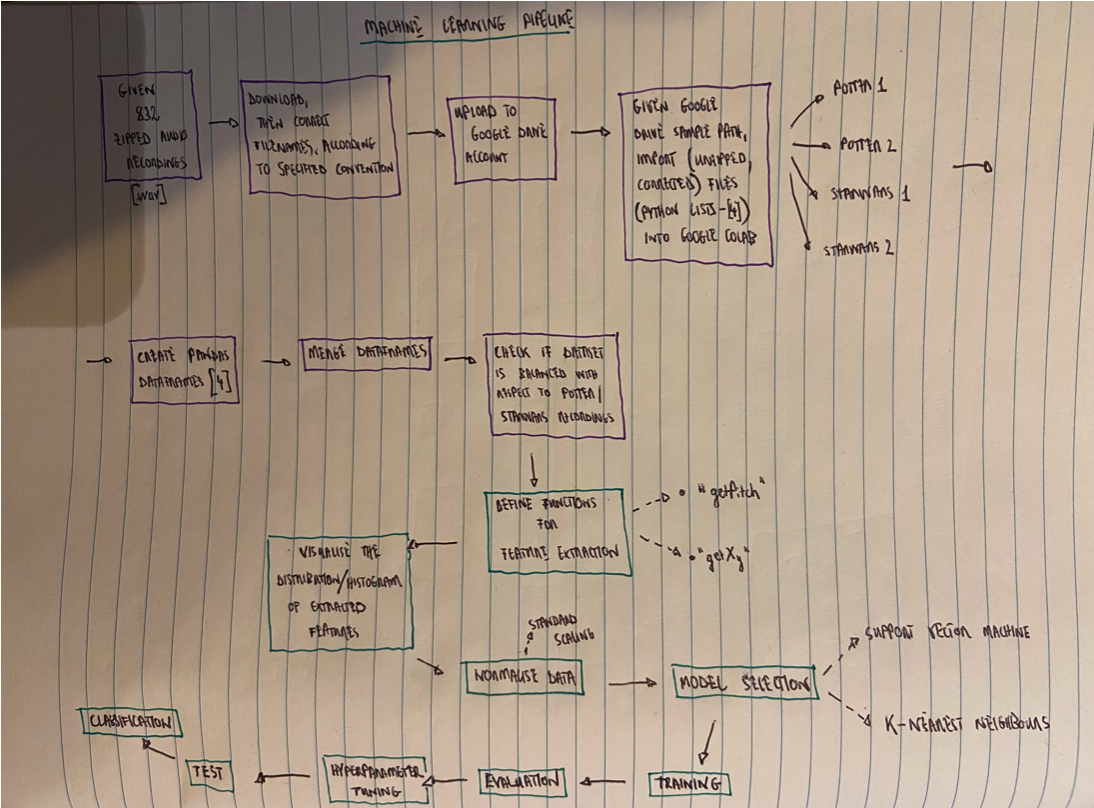 MACHINE LEARNING PIPELINE
GIVEN
832
ZIPPED AUDIO
RECORDINGS
[wav]
DOWNLOAD,
THEN CORRECT
FILENAMES, ACCORDING
TO SPECIFIED CONVENTION
UPLOAD TO
GOOGLE DRIVE
ACCOUNT
GIVEN GOOGLE
DRIVE SAMPLE PATH,
IMPORT (UNZIPPED,
CORRECTED) FILES
(PYTHON LISTS-[4])
INTO GOOGLE COLAB
POTTER 1
POTTER 2
STARWARS 1
STARWARS 2
CREATE PANDAS
DATAFRAMES [4]
MERGE DATAFRAMES
CHECK IF DATASET
IS BALANCED WITH
RESPECT TO POTTER/
STARWARS RECORDINGS
DEFINE FUNCTIONS
FOR
FEATURE EXTRACTION
"getPitch"
"getXy"
VISUALISE THE
DISTRIBUTION/HISTOGRAM
OF EXTRACTED
FEATURES
STANDARD
SCALING
NORMALISE DATA
MODEL SELECTION
SUPPORT VECTOR MACHINE
K-NEAREST NEIGHBOURS
TRAINING
EVALUATION
HYPERPARAMETER
TUNING
TEST
CLASSIFICATION